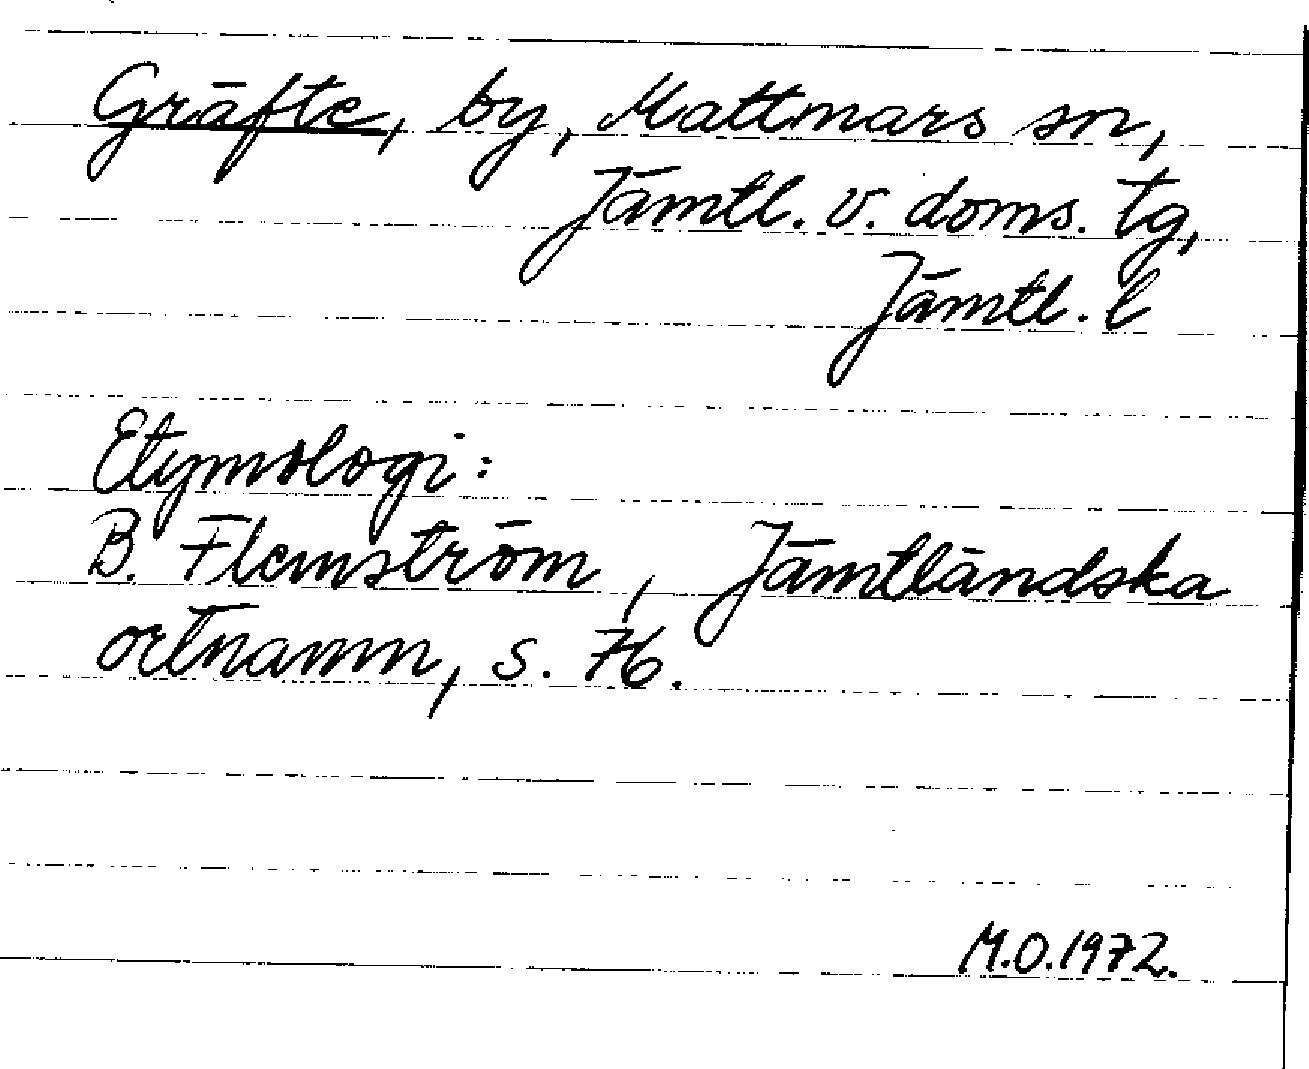 Gräfte, by, Mattmars sn,
Jämtl. v. doms. tg,
Jämtl. l
Etymologi:
B. Flemström, Jämtländska
ortnamn, s. 76.
M.O.1972.